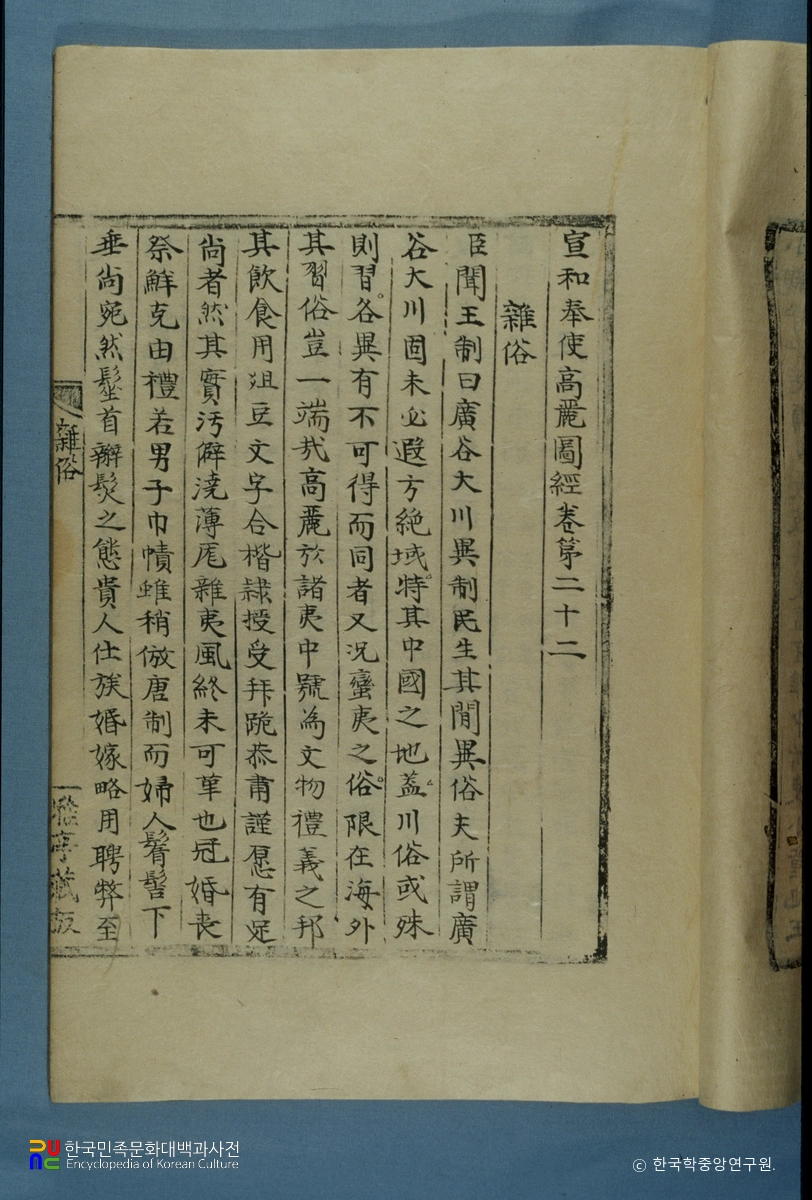 宣和奉使高麗圖經卷第二十二
雜俗
臣聞王制曰廣谷大川異制民生其間異俗夫所謂廣
谷大川固未必遐方絶域特其中國之地蓋川俗或殊
則習各異有不可得而同者又況蠻夷之俗限在海外
其習俗豈一端㢤高麗於諸夷中號為文物禮義之邦
其飲食用俎豆文字合楷隷授受拜跪恭肅謹愿有足
尚者然其實汚僻澆薄厖雜夷風終未可革也冠婚喪
祭鮮克由禮若男子巾幘雖稍倣唐制而婦人鬌髻下
垂尚宛然髽首辮髮之態貴人仕族婚嫁略用聘幣至
雜俗
亭藏板
한국민족문화대백과사전
Encyclopedia of Korean Culture
ⓒ 한국학중앙연구원.